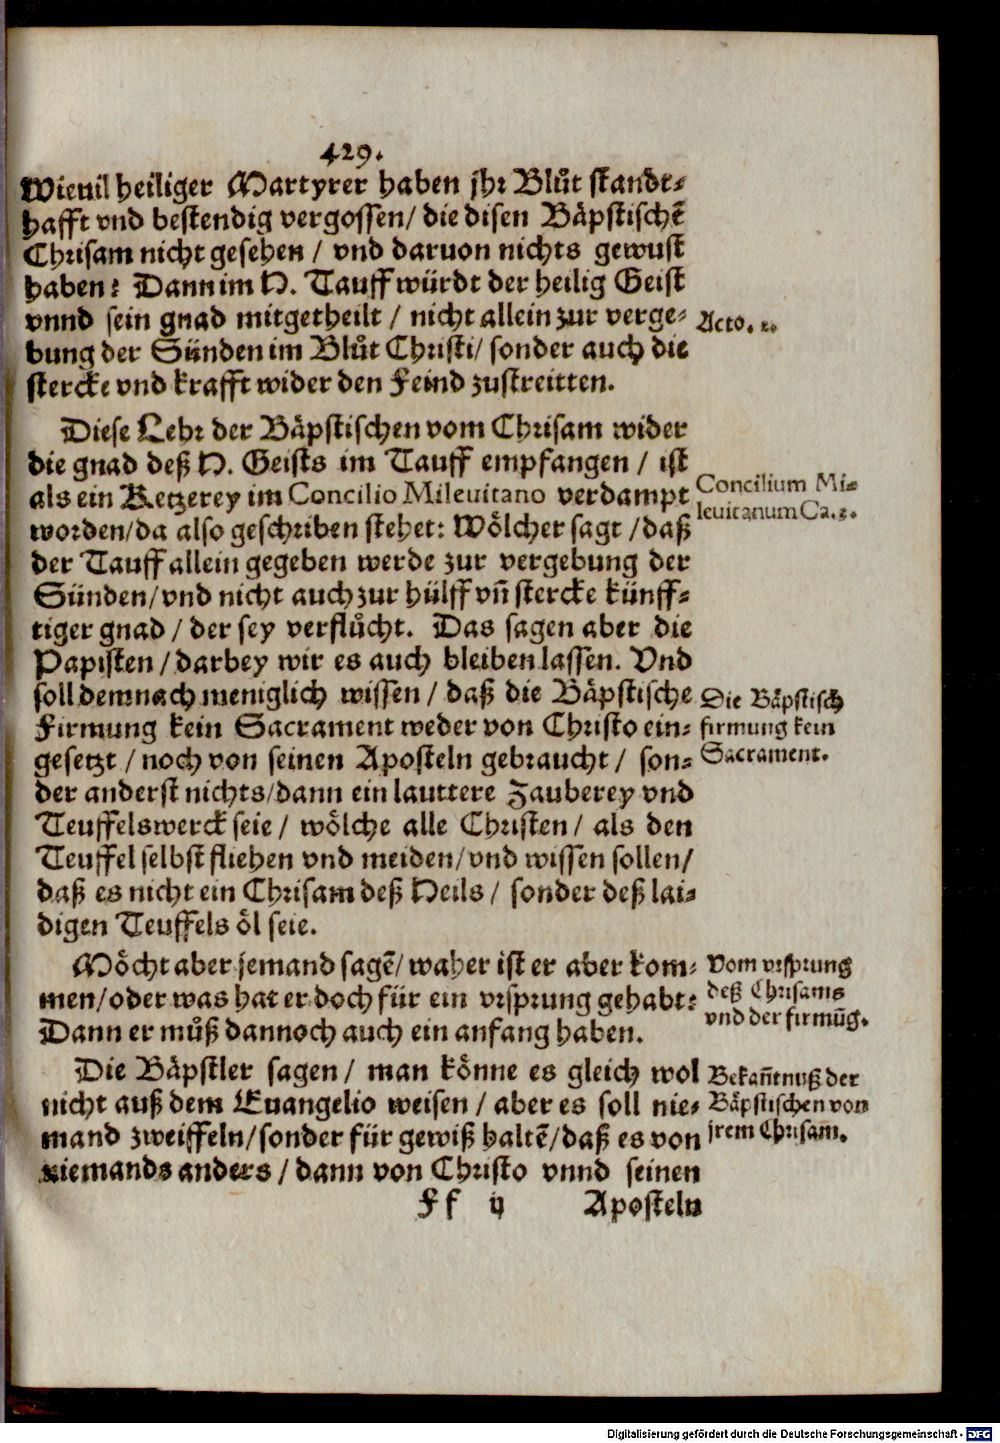 429.
Wieuil heiliger Martyrer haben jhr Blůt standt-
hafft vnd bestendig vergossen/ die disen Bäpstischē
Chrisam nicht gesehen / vnd daruon nichts gewust
haben? Dann im H. Tauff würdt der heilig Geist
vnnd sein gnad mitgetheilt / nicht allein zur verge-
bung der Sünden im Blůt Christi/ sonder auch die
stercke vnd krafft wider den Feind zustreitten.
Acto. 2.
Diese Lehr der Bäpstischen vom Chrisam wider
die gnad deß H. Geists im Tauff empfangen / ist
als ein Ketzerey im Concilio Mileuitano verdampt
worden/da also geschriben stehet: Wölcher sagt /daß
der Tauff allein gegeben werde zur vergebung der
Sünden/vnd nicht auch zur hülff vn̄ stercke künff-
tiger gnad / der sey verflůcht. Das sagen aber die
Papisten/ darbey wir es auch bleiben lassen. Vnd
soll demnach meniglich wissen / daß die Bäpstische
Firmung kein Sacrament weder von Christo ein-
gesetzt / noch von seinen Aposteln gebraucht / son-
der anderst nichts/dann ein lauttere Zauberey vnd
Teuffelswerck seie / wölche alle Christen/ als den
Teuffel selbst fliehen vnd meiden/vnd wissen sollen/
daß es nicht ein Chrisam deß Heils / sonder deß lai-
digen Teuffels öl seie.
Concilium Mi-
leuitanum Ca.3.
Die Bäpstisch
firmung kein
Sacrament.
Möcht aber jemand sagē/ waher ist er aber kom-
men/oder was hat er doch für ein vrsprung gehabt:
Dann er můß dannoch auch ein anfang haben.
Vom vrsprung
deß Chrisams
vnd der firmūg.
Die Bäpstler sagen/ man könne es gleich wol
nicht auß dem Euangelio weisen / aber es soll nie-
mand zweiffeln/sonder für gewiß haltē/daß es von
niemands anders / dann von Christo vnnd seinen
Bekan̄tnuß der
Bäpstischen von
jrem Chrisam.
Ff ij Aposteln
Digitalisierung gefördert durch die Deutsche Forschungsgemeinschaft - DFG